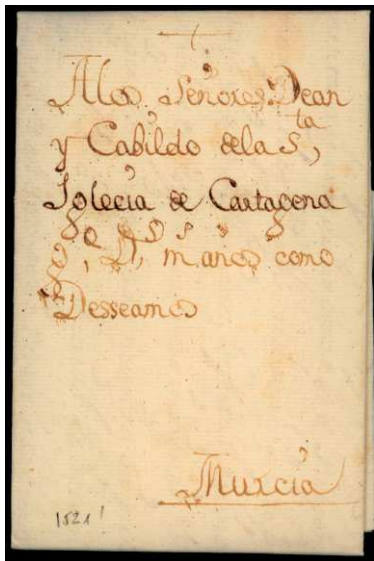 +
A los Señores Dean
y Cabildo de la S,ta
Iglecia de Cartagena
g,e D,s m. años como
Desseamos
Murcia
1521